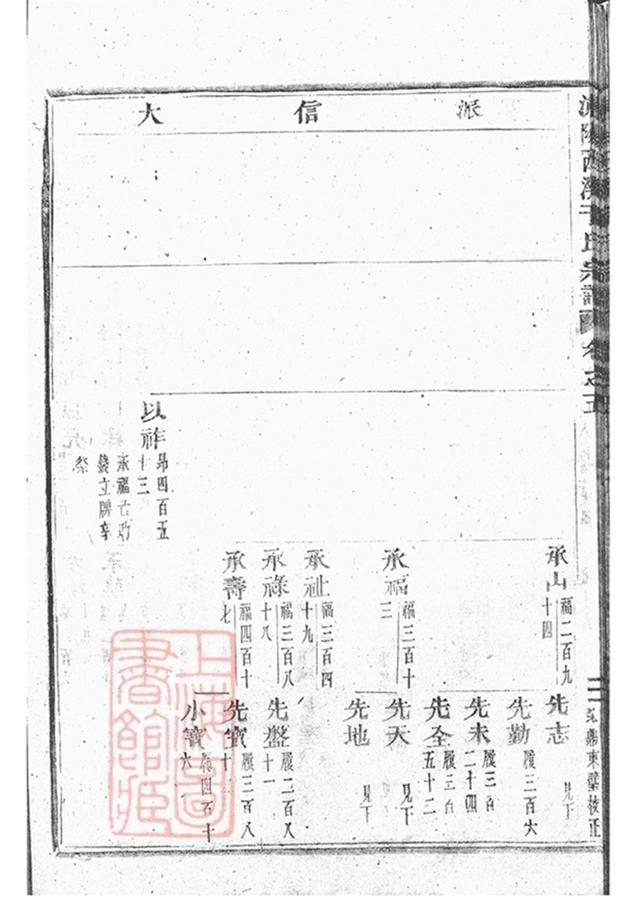 西溪于氏宗譜 卷之五
東壁校正
派 信 大
承山 福二百九
十四
先志 見下
先勤 履三百六
先未 履三百
二十四
先全 履三百
五十二
承福 福三百十
三
先天 見下
先地 見下
承祉 福三百四
十九
承祿 福三百八
十八
先盤 履二百八
十一
承壽 福四百十
七
先寳 履三百八
十
小寶 履四百十
六
以祚 昂四百五
十三
承福
立牌奉
祭
上海圖
書館藏